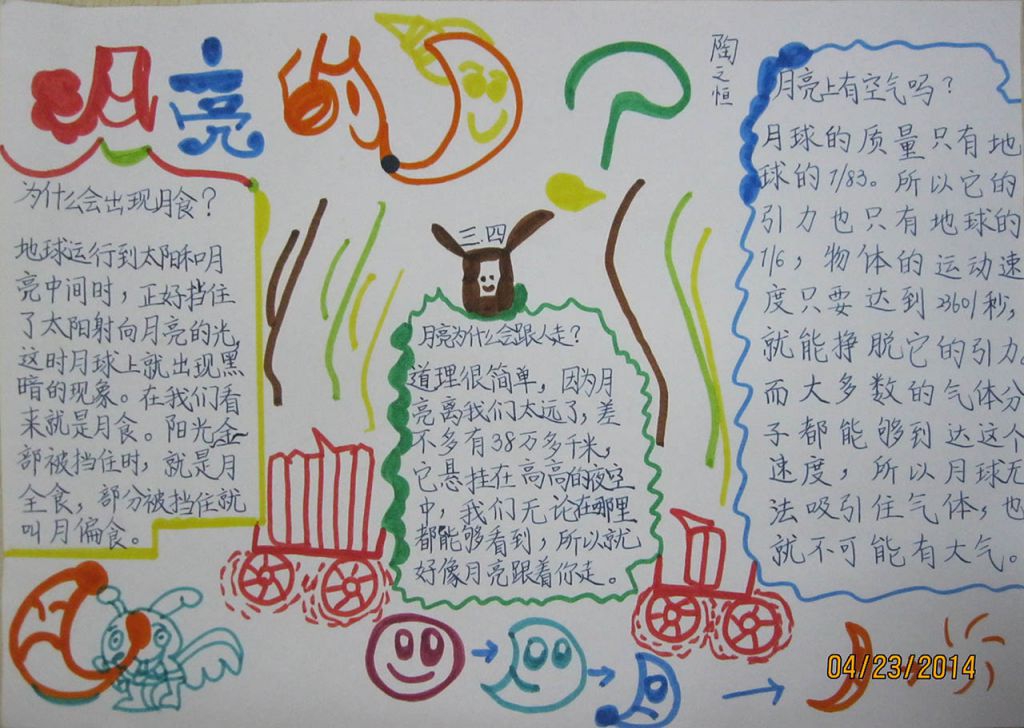 月亮的？
陶之恒
三.四
为什么会出现月食？
地球运行到太阳和月
亮中间时，正好挡住
了太阳射向月亮的光，
这时月球上就出现黑
暗的现象。在我们看
来就是月食。阳光全
部被挡住时，就是月
全食，部分被挡住就
叫月偏食。
月亮为什么会跟人走？
道理很简单，因为月
亮离我们太远了，差
不多有38万多千米，
它悬挂在高高的夜空
中，我们无论在哪里
都能够看到，所以就
好像月亮跟着你走。
月亮上有空气吗？
月球的质量只有地
球的1/83。所以它的
引力也只有地球的
1/6，物体的运动速
度只要达到2360/秒，
就能挣脱它的引力。
而大多数的气体分
子都能够到达这个
速度，所以月球无
法吸引住气体，也
就不可能有大气。
04/23/2014